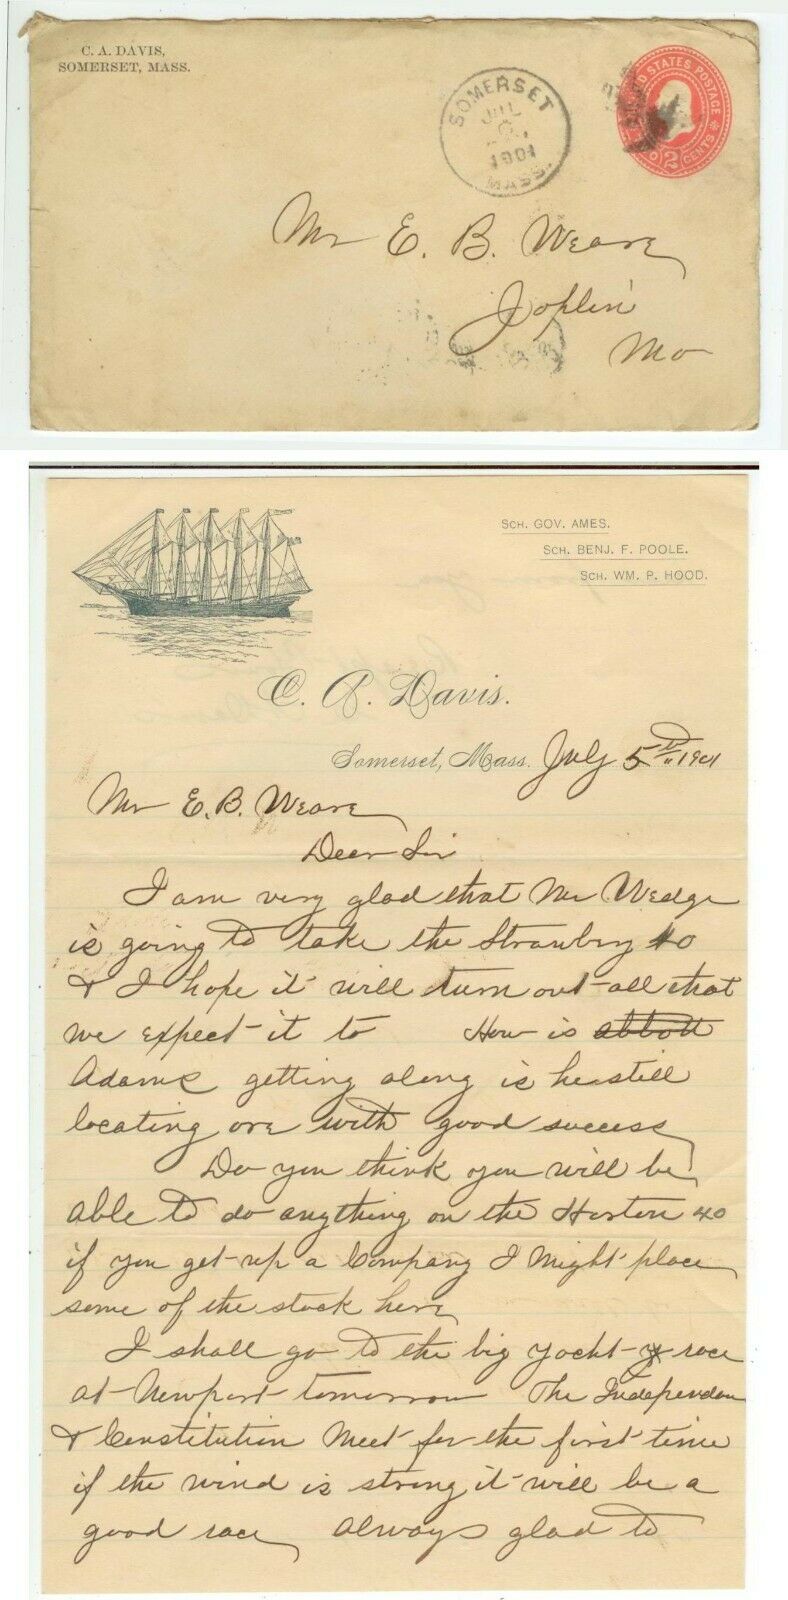 C. A. DAVIS,
SOMERSET, MASS.
SOMERSET
JUL
1901
MASS.
UNITED STATES POSTAGE
TWO 2 CENTS
Mr E. B. Weare
Joplin
Mo
SCH. GOV. AMES.
SCH. BENJ. F. POOLE.
SCH. WM. P. HOOD.
C. A. Davis.
Somerset, Mass. July 5th 1901
Mr E. B. Weare
Dear Sir
I am very glad that Mr Wedge
is going to take the Strawbery 40
& I hope it will turn out all that
we expect it to How is abbott
Adams getting along is he still
locating ore with good success
Do you think you will be
able to do anything on the Horton 40
if you get up a Company I might place
some of the stock here
I shall go to the big yacht race
at Newport tomorrow The Independen
& Constitution Meet for the first time
if the wind is strong it will be a
good race always glad to